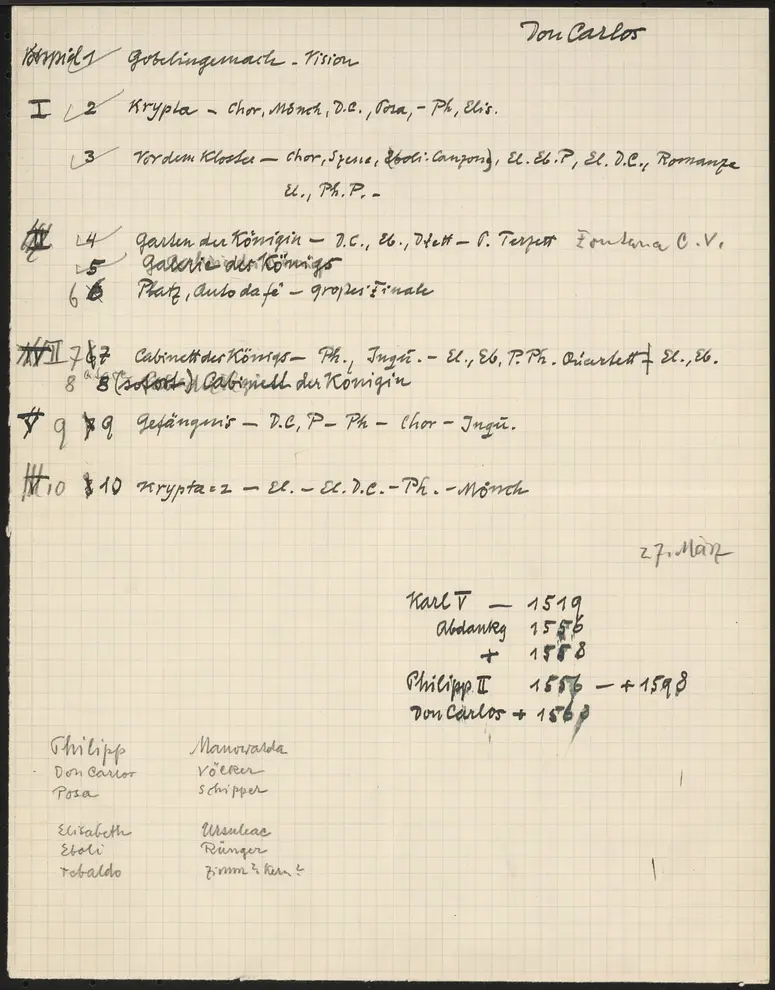 Don Carlos
Vorspiel 1 Gobelingemach - Vision
I 2 Krypta - Chor, Mönch, D.C., Posa, - Ph, Elis.
3 Vor dem Kloster - Chor, Szene, (Eboli-Canzone), El. Eb. P, El. D.C., Romanze
El., Ph. P. -
4 Garten der Königin - D.C., Eb., Duett - P. Terzett Fontana C. V.
5 Galerie des Königs
6 6 Platz, Autodafé - großes Finale
II 7 7 Cabinett des Königs - Ph., Inqu. - El., Eb, P. Ph. Quartett - El., Eb.
8 8 (sofort) Cabinett der Königin
V 9 9 Gefängnis - D.C, P - Ph - Chor - Inqu.
10 10 Krypta = 2 - El. - El. D.C. - Ph. - Mönch
27. März
Karl V - 1519
Abdankg 1556
+ 1558
Philipp II 1556 - + 1598
Don Carlos + 1568
Philipp Manowarda
Don Carlos Völker
Posa Schipper
Elisabeth Ursuleac
Eboli Rünger
Tebaldo Zimm? Kern?